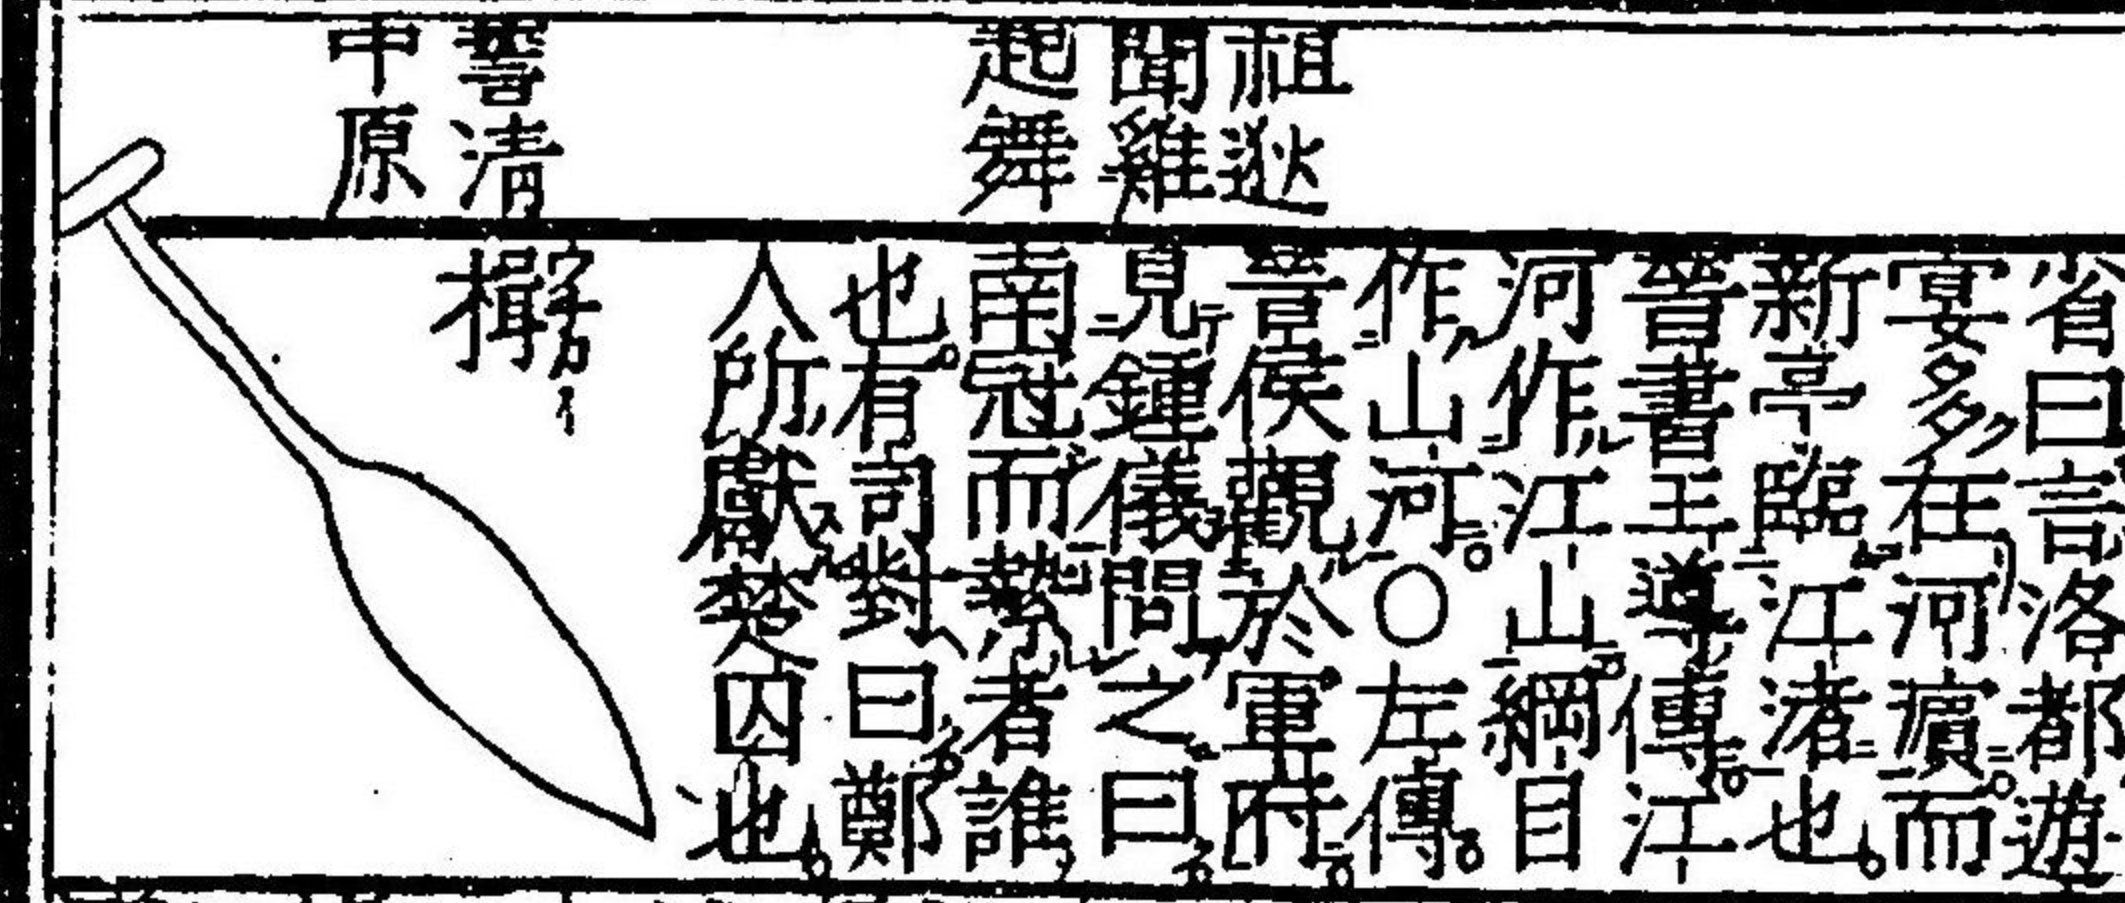 祖逖
聞雞
起舞
誓清
中原
省曰言洛都遊
宴多ク在河濱而
新亭臨江渚也
晉書王導傳江
河作ル江山綱目
作ル山河〇左傳
晉侯觀於軍府
見テ鍾儀問之曰
南冠而縶者誰
也有司對曰鄭
人所獻楚囚也
楫
ウチカイ